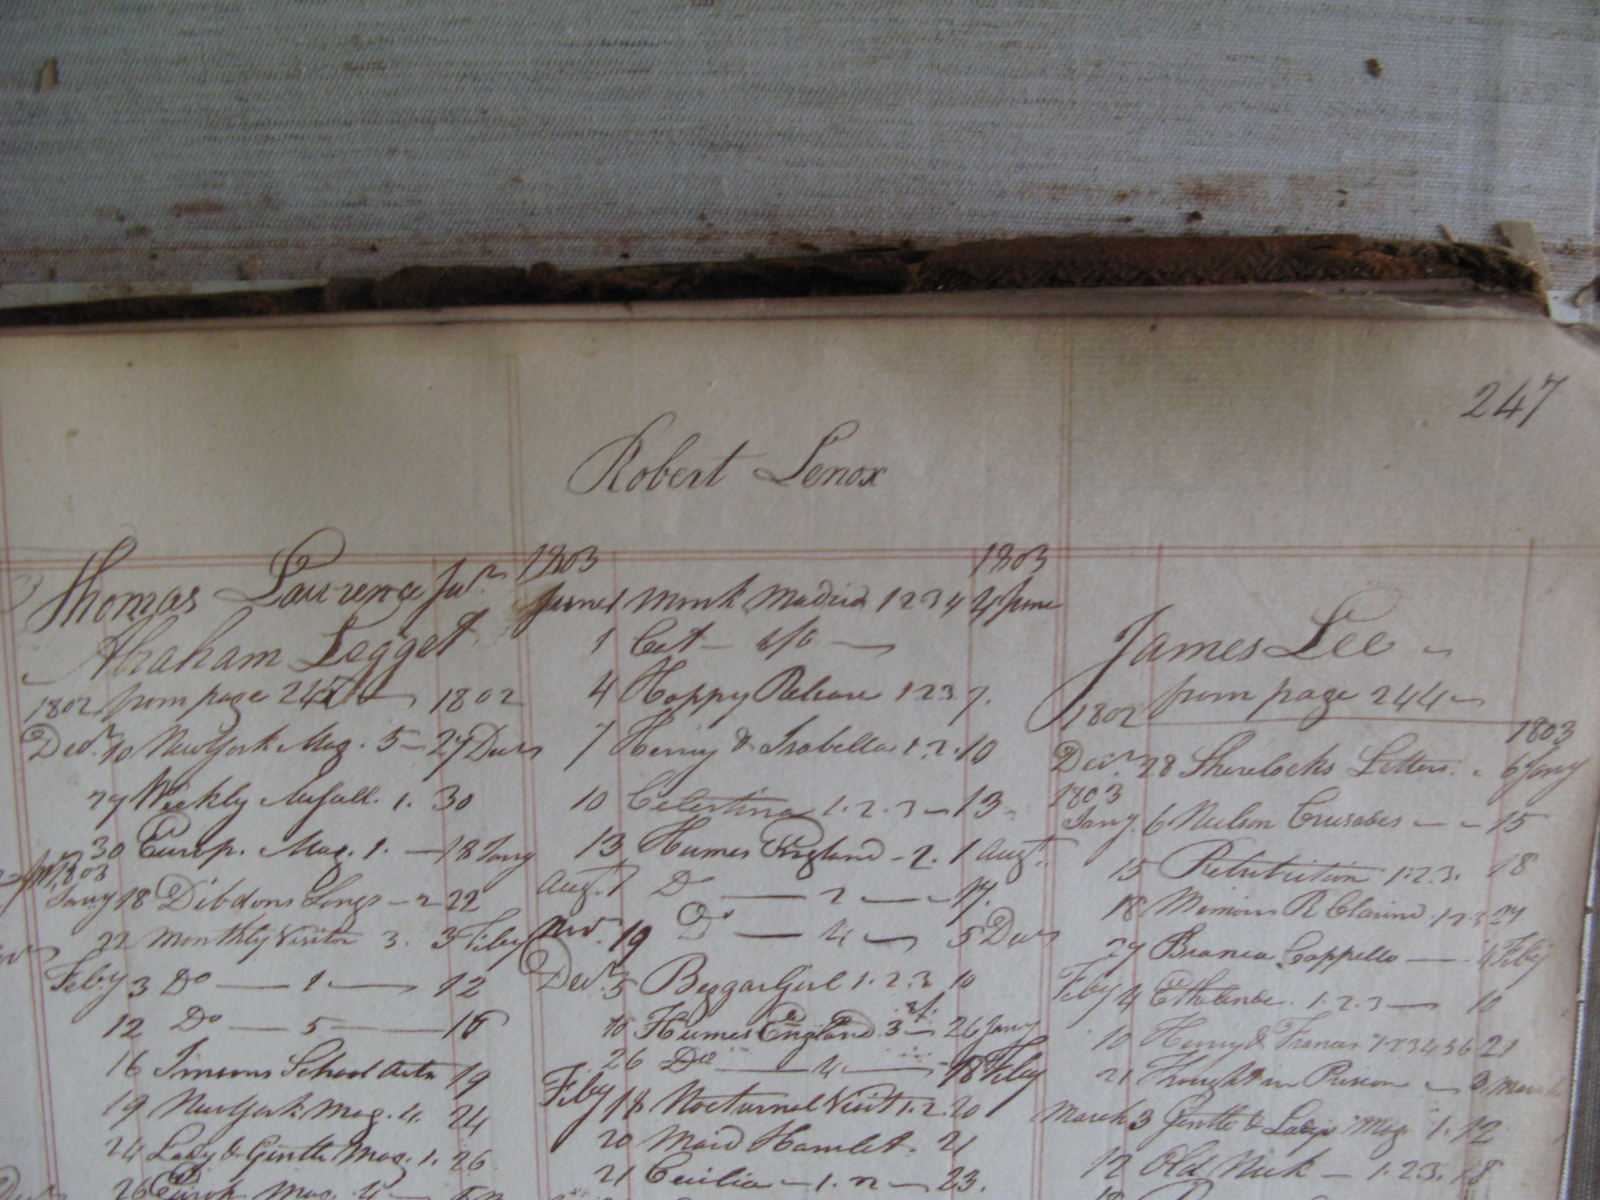 247
Robert Lenox
Thomas Lawrence Junr
Abraham Legget
1802 from page 245 1802
Decr. 10 New York Mag. 5 - 27 Decr
27 Weekly 1. 30
30 Europ. Mag. 1. - 18 Jany
1803
Jany 18 Dibdons Songs - 2 22
22 Monthly Visitor 3. 3 Feby
Feby 3 Do - 1 - 12
12 Do - 5 - 16
16 School 19
19 New York Mag. 4. 24
24 Lady & Gentle Mag. 1. 26
26 Europ Mag. 4
1803 1803
June 1 Monk Madrid 1 2 3 4 4 June
1 Cat -
4 Happy Release 1 2 3 7.
7 Henry & Isabella 1. 2. 10
10 Celestina 1. 2. 3 - 13
13 Humes England - 2. 1 Augt.
Augt. 1 Do - 2 - 17.
Novr. 19 Do - 4 - 5 Decr
Decr. 5 Beggar Girl 1. 2. 3 10
10 Humes England 3 - 26 Jany
26 Do - 4 - 18 Feby
Feby 18 Nocturnal Visit 1. 2. 20
20 Maid Hamlet. 21
21 Cecilia - 1. 2 - 23.
James Lee
1802 from page 244
1803
Decr. 28 Sherlocks Letters. 6 Jany
1803
Jany. 6 Nelson Crusades - - 15
15 Retribution 1. 2. 3. 18
18 Memoirs R Clarind. 1 2 3 27
27 Bianca Cappello - 4 Feby
Feby 4 Ethelinde. 1. 2. 3 - 10
10 Henry & Frances 1 2 3 4 5 6 21
21 in Prison - 3 March
March 3 Gentle & Ladys Mag. 1. 12
12 Old Nick - 1. 2. 3. 18